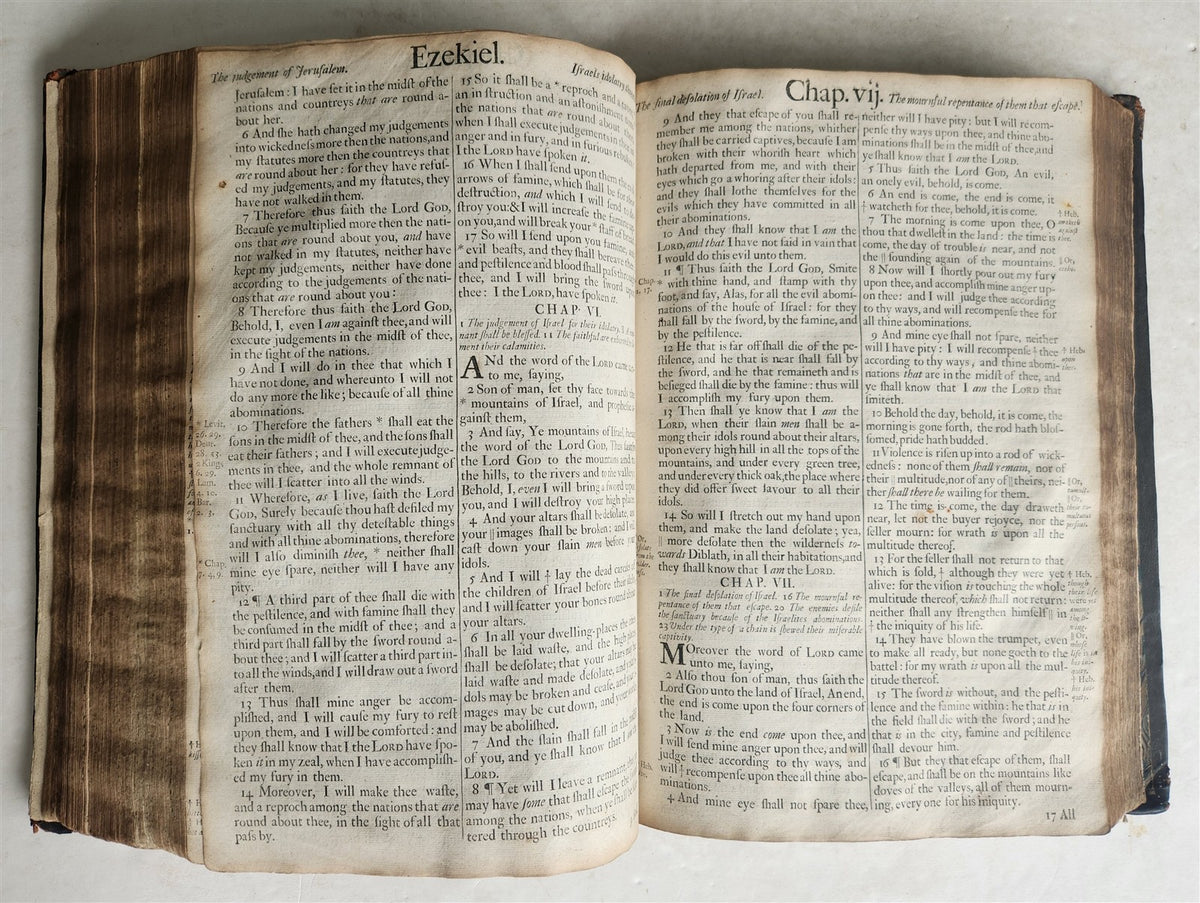 The judgement of Jerusalem.
Ezekiel.
Iſraels idolatry
Jeruſalem: I have ſet it in the midſt of the
nations and countreys that are round a-
bout her.
6 And ſhe hath changed my judgements
into wickedneſs more then the nations, and
my ſtatutes more then the countreys that
are round about her: for they have refuſ-
ed my judgements, and my ſtatutes, they
have not walked in them.
7 Therefore thus ſaith the Lord GOD,
Becauſe ye multiplied more then the nati-
ons that are round about you, and have
not walked in my ſtatutes, neither have
kept my judgements, neither have done
according to the judgements of the nati-
ons that are round about you:
8 Therefore thus ſaith the Lord GOD,
Behold, I, even I am againſt thee, and will
execute judgements in the midſt of thee,
in the ſight of the nations.
9 And I will do in thee that which I
have not done, and whereunto I will not
do any more the like; becauſe of all thine
abominations.
10 Therefore the fathers * ſhall eat the
ſons in the midſt of thee, and the ſons ſhall
eat their fathers; and I will execute judge-
ments in thee, and the whole remnant of
thee will I ſcatter into all the winds.
11 Wherefore, as I live, ſaith the Lord
GOD, Surely becauſe thou haſt defiled my
ſanctuary with all thy deteſtable things
and with all thine abominations, therefore
will I alſo diminiſh thee, * neither ſhall
mine eye ſpare, neither will I have any
pity.
12 ¶ A third part of thee ſhall die with
the peſtilence, and with famine ſhall they
be conſumed in the midſt of thee; and a
third part ſhall fall by the ſword round a-
bout thee; and I will ſcatter a third part in-
to all the winds, and I will draw out a ſword
after them.
13 Thus ſhall mine anger be accom-
pliſhed, and I will cauſe my fury to reſt
upon them, and I will be comforted: and
they ſhall know that I the LORD have ſpo-
ken it in my zeal, when I have accompliſh-
ed my fury in them.
14 Moreover, I will make thee waſte,
and a reproch among the nations that are
round about thee, in the ſight of all that
paſs by.
* Levit.
26. 29.
Deut.
28. 53.
2 Kings
6. 29.
Lam.
4. 10.
Bar.
2. 3.
* Chap.
7. 4, 9.
15 So it ſhall be a * reproch and a
an inſtruction and an aſtoniſhment
the nations that are round about
when I ſhall execute judgements in
anger and in fury, and in furious
I the LORD have ſpoken it.
16 When I ſhall ſend upon them the
arrows of famine, which ſhall be for
deſtruction, and which I will ſend to
ſtroy you: & I will increaſe the famine
on you, and will break your * ſtaff of
17 So will I ſend upon you famine, and
* evil beaſts, and they ſhall bereave
and peſtilence and blood ſhall paſs through
thee, and I will bring the ſword
thee: I the LORD, have ſpoken it.
CHAP. VI.
1 The judgement of Iſrael for their idolatry.
nant ſhall be bleſſed. 11 The faithful are
ment their calamities.
ANd the word of the LORD came
to me, ſaying,
2 Son of man, ſet thy face towards
* mountains of Iſrael, and propheſie
gainſt them,
3 And ſay, Ye mountains of Iſrael,
the word of the Lord GOD, Thus
the Lord GOD to the mountains and
the hills, to the rivers and to the
Behold, I, even I will bring a ſword
and I will deſtroy your high
4 And your altars ſhall be deſolate, and
your || images ſhall be broken: and I
caſt down your ſlain men before
idols.
5 And I will † lay the dead
the children of Iſrael before their
and I will ſcatter your bones round
your altars.
6 In all your dwelling-places the
ſhall be laid waſte, and the high
ſhall be deſolate; that your altars
laid waſte and made deſolate, and
dols may be broken and ceaſe, and
mages may be cut down, and your
may be aboliſhed.
7 And the ſlain ſhall fall in the
of you, and ye ſhall know that I
LORD.
8 ¶ Yet will I leave a remnant,
may have ſome that ſhall eſcape the
among the nations, when ye ſhall
tered through the countreys.
The final deſolation of Iſrael.
Chap. vij.
The mournful repentance of them that eſcape.
9 And they that eſcape of you ſhall re-
member me among the nations, whither
they ſhall be carried captives, becauſe I am
broken with their whoriſh heart which
hath departed from me, and with their
eyes which go a whoring after their idols:
and they ſhall lothe themſelves for the
evils which they have committed in all
their abominations.
10 And they ſhall know that I am the
LORD, and that I have not ſaid in vain that
I would do this evil unto them.
11 ¶ Thus ſaith the Lord GOD, Smite
* with thine hand, and ſtamp with thy
foot, and ſay, Alas, for all the evil abomi-
nations of the houſe of Iſrael: for they
ſhall fall by the ſword, by the famine, and
by the peſtilence.
12 He that is far off ſhall die of the pe-
ſtilence, and he that is near ſhall fall by
the ſword, and he that remaineth and is
beſieged ſhall die by the famine: thus will
I accompliſh my fury upon them.
13 Then ſhall ye know that I am the
LORD, when their ſlain men ſhall be a-
mong their idols round about their altars,
upon every high hill in all the tops of the
mountains, and under every green tree,
and under every thick oak, the place where
they did offer ſweet ſavour to all their
idols.
14 So will I ſtretch out my hand upon
them, and make the land deſolate; yea,
|| more deſolate then the wilderneſs to-
wards Diblath, in all their habitations, and
they ſhall know that I am the LORD.
CHAP. VII.
1 The final deſolation of Iſrael. 16 The mournful re-
pentance of them that eſcape. 20 The enemies defile
the ſanctuary becauſe of the Iſraelites abominations.
23 Under the type of a chain is ſhewed their miſerable
captivity.
MOreover the word of LORD came
unto me, ſaying,
2 Alſo thou ſon of man, thus ſaith the
Lord GOD unto the land of Iſrael, An end,
the end is come upon the four corners of
the land.
3 Now is the end come upon thee, and
I will ſend mine anger upon thee, and will
judge thee according to thy ways, and
will † recompenſe upon thee all thine abo-
minations.
4 And mine eye ſhall not ſpare thee,
Chap.
neither will I have pity: but I will recom-
penſe thy ways upon thee, and thine abo-
minations ſhall be in the midſt of thee, and
ye ſhall know that I am the LORD.
5 Thus ſaith the Lord GOD, An evil,
an onely evil, behold, is come.
6 An end is come, the end is come, it
† watcheth for thee, behold, it is come.
7 The morning is come upon thee, O
thou that dwelleſt in the land: the time is
come, the day of trouble is near, and not
the || ſounding again of the mountains.
8 Now will I ſhortly pour out my fury
upon thee, and accompliſh mine anger up-
on thee: and I will judge thee according
to thy ways, and will recompenſe thee for
all thine abominations.
9 And mine eye ſhall not ſpare, neither
will I have pity: I will recompenſe † thee
according to thy ways, and thine abomi-
nations that are in the midſt of thee, and
ye ſhall know that I am the LORD that
ſmiteth.
10 Behold the day, behold, it is come, the
morning is gone forth, the rod hath bloſ-
ſomed, pride hath budded.
11 Violence is riſen up into a rod of wick-
edneſs: none of them ſhall remain, nor of
their || multitude, nor of any of || theirs, nei-
ther ſhall there be wailing for them.
12 The time is come, the day draweth
near, let not the buyer rejoyce, nor the
ſeller mourn: for wrath is upon all the
multitude thereof.
13 For the ſeller ſhall not return to that
which is ſold, † although they were yet
alive: for the viſion is touching the whole
multitude thereof, which ſhall not return:
neither ſhall any ſtrengthen himſelf || in
† the iniquity of his life.
14 They have blown the trumpet, even
to make all ready, but none goeth to the
battel: for my wrath is upon all the mul-
titude thereof.
15 The ſword is without, and the peſti-
lence and the famine within: he that is in
the field ſhall die with the ſword; and he
that is in the city, famine and peſtilence
ſhall devour him.
16 ¶ But they that eſcape of them, ſhall
eſcape, and ſhall be on the mountains like
doves of the valleys, all of them mourn-
ing, every one for his iniquity.
17 All
† Heb.
|| Or,
† Heb.
upon
thee.
|| Or,
|| Or,
† Heb.
|| Or,
† Heb.